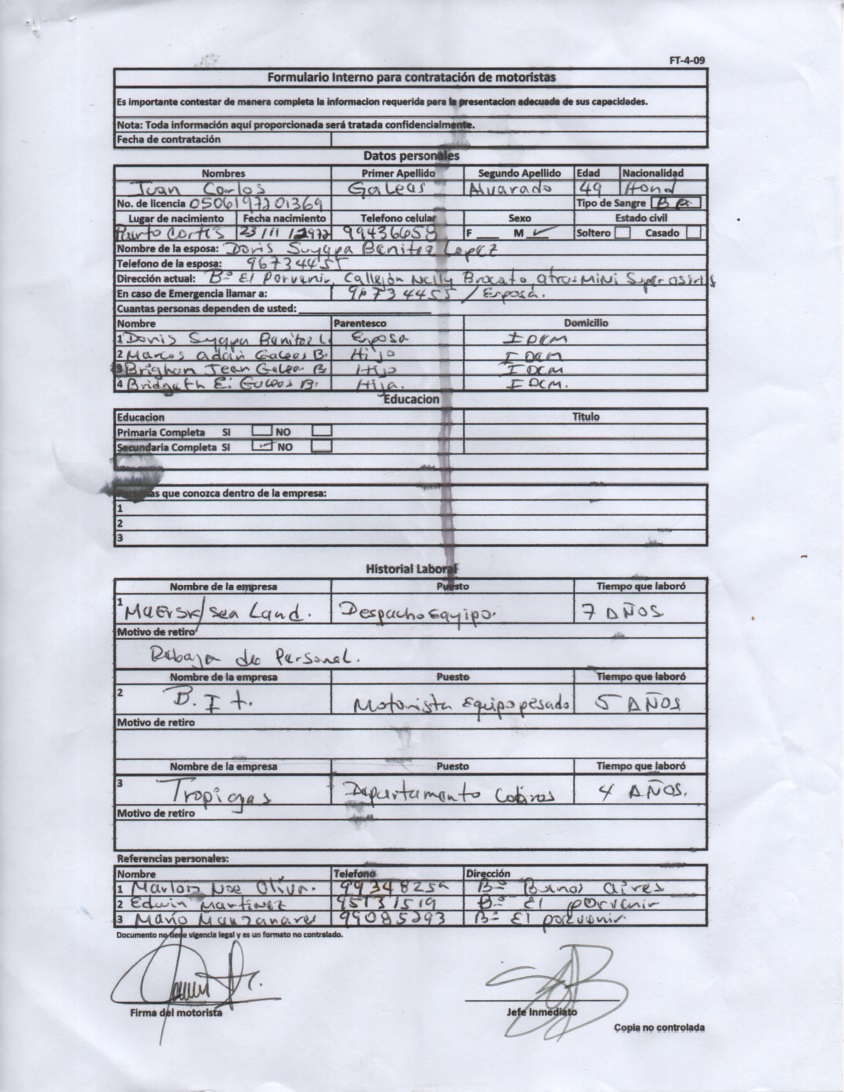 FT-4-09
Formulario Interno para contratación de motoristas
Es importante contestar de manera completa la informacion requerida para la presentacion adecuada de sus capacidades.
Nota: Toda información aquí proporcionada será tratada confidencialmente.
Fecha de contratación
Datos personales
Nombres Primer Apellido Segundo Apellido Edad Nacionalidad
Juan Carlos Galeas Alvarado 49 Hond
No. de licencia 0506197201369 Tipo de Sangre
Lugar de nacimiento Fecha nacimiento Telefono celular Sexo Estado civil
Puerto Cortes 23/11/1972 99436659 F M ✓ Soltero Casado
Nombre de la esposa: Doris Suyapa Benitez Lopez
Telefono de la esposa: 96734455
Dirección actual: Bº El Porvenir, Callejón Nelly Brocato atras Mini Super
En caso de Emergencia llamar a: 96734455 / Esposa.
Cuantas personas dependen de usted:
Nombre Parentesco Domicilio
1 Doris Suyapa Benitez L. Esposa IDEM
2 Marcos Galeas B. Hijo IDEM
3 Brighan Jean Galeas B Hijo IDEM
4 Bridgeth E. Galeas B. Hija. IDEM.
Educacion
Educacion Titulo
Primaria Completa SI NO
Secundaria Completa SI ✓ NO
que conozca dentro de la empresa:
1
2
3
Historial Laboral
Nombre de la empresa Puesto Tiempo que laboró
1 Maersk/Sea Land. Despacho Equipo. 7 AÑOS
Motivo de retiro
Rebaja de Personal.
Nombre de la empresa Puesto Tiempo que laboró
2 B.I.t. Motorista Equipo pesado 5 AÑOS
Motivo de retiro
Nombre de la empresa Puesto Tiempo que laboró
3 Tropigas Departamento Cobros 4 AÑOS.
Motivo de retiro
Referencias personales:
Nombre Telefono Dirección
1 Marlon Noe Oliva. Bº Buenos aires
2 Edwin Martinez 95131519 Bº El porvenir
3 Mario Manzanares 99085293 Bº El porvenir
Documento no tiene vigencia legal y es un formato no contralado.
Firma del motorista Jefe Inmediato
Copia no controlada